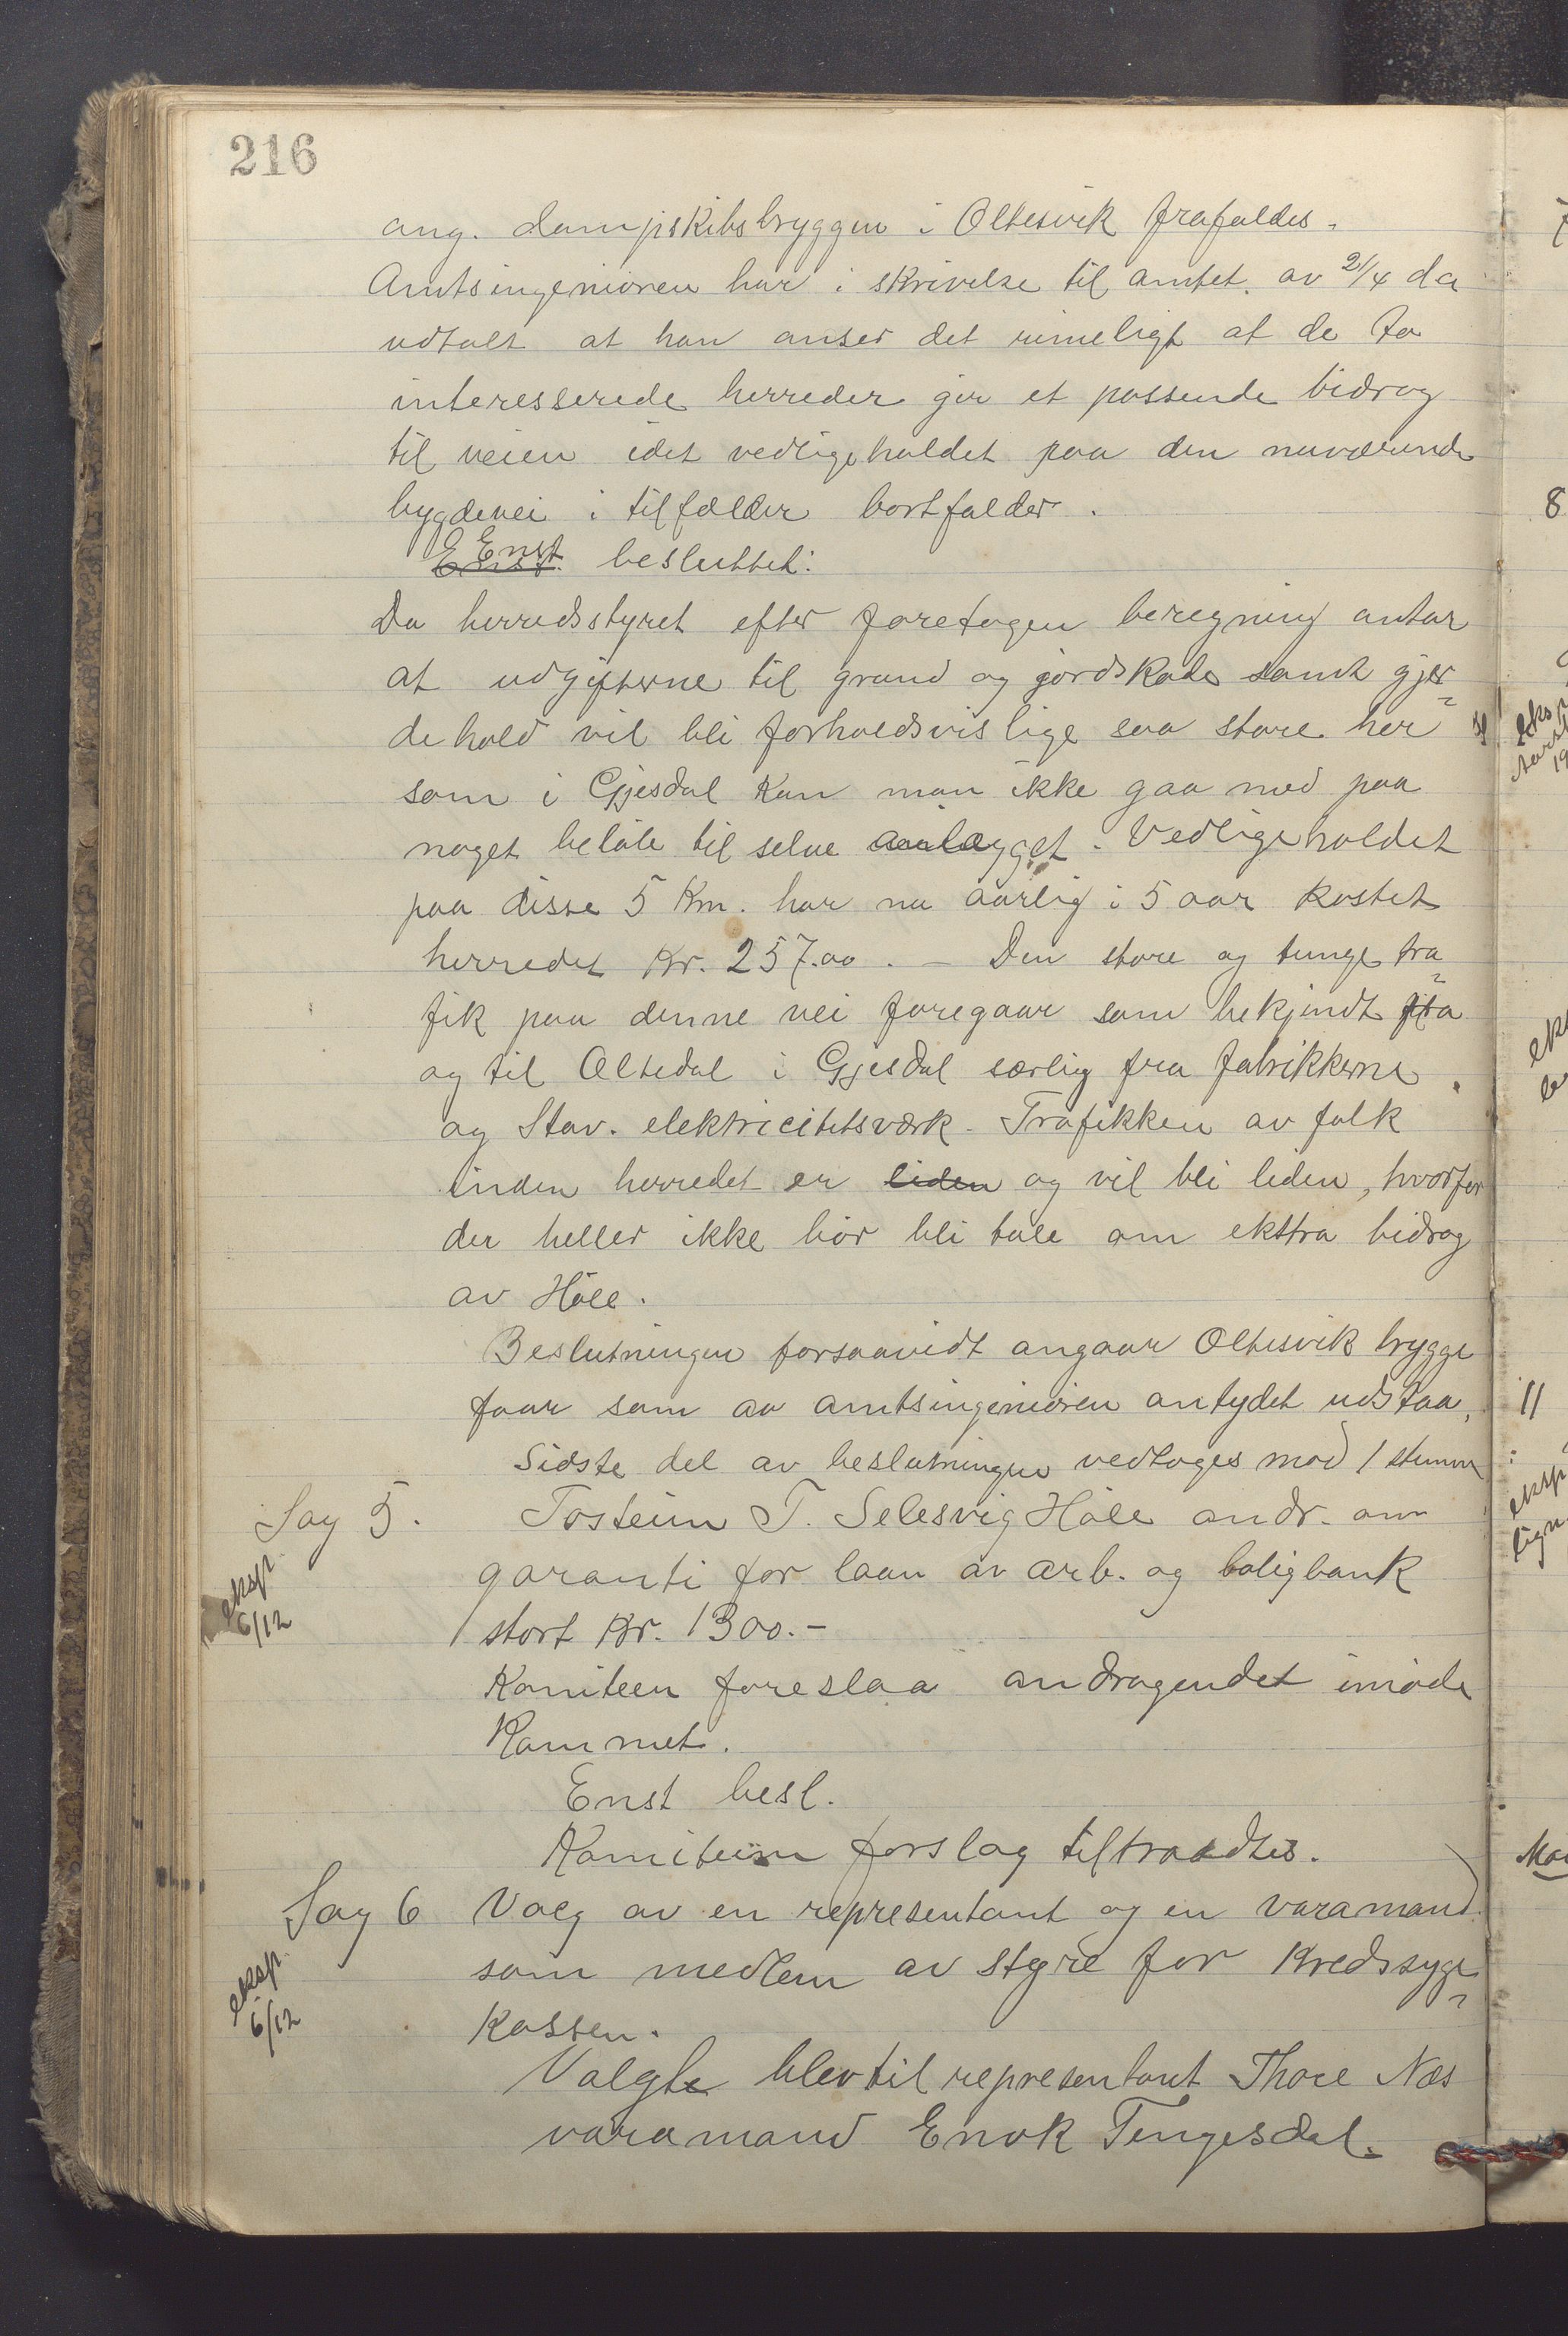 216
ang. dampskibsbryggen i Oltesvik frafaldes.
Amtsingeniøren har i skrivelse til amtet av 2/4 da
udtalt at han anser det rimeligt at de to
interesserede herreder gir et passende bidrag
til veien idet vedligeholdet paa den nuværende
bygdevei i tilfælder bortfalder.
E Enst
E Enst. besluttet:
Da herredsstyret efter foretagen beregning antar
at udgifterne til grund og jordskade samt gjer-
dehold vil bli forholdsvislige saa store her
som i Gjesdal kan man ikke gaa med paa
noget beløb til selve anlægget. Vedligeholdet
paa disse 5 Km. har nu aarlig i 5 aar kostet
herredet Kr. 257.00. — Den store og tunge tra-
fik paa denne vei foregaar som bekjendt fra
og til Oltedal i Gjesdal særlig fra fabrikkerne
og Stav. elektricitetsværk. Trafikken av folk
inden herredet er liden og vil bli liden, hvorfor
der heller ikke bør bli tale om ekstra bidrag
av Høle.
Beslutningen forsaavidt angaar Oltesvik brygge
faar som av amtsingeniøren antydet udstaa,
Sidste del av beslutningen vedtoges mod 1 stemme
Sag 5. Tosteim T. Selesvig Høle andr. om
eksp. 6/12
garanti for laan av arb. og boligbank
stort Kr. 1300.-
Komiteen foreslaa andragendet imøde
Kommet.
Enst besl.
Komiteens forslag tiltraadtes.
Sag 6 Valg av en representant og en varamand
eksp. 6/12
som medlem av styre for Kredssyge-
Kassen.
Valgte blev til representant Thore Næs
varamand Enok Tengesdal.
8
11